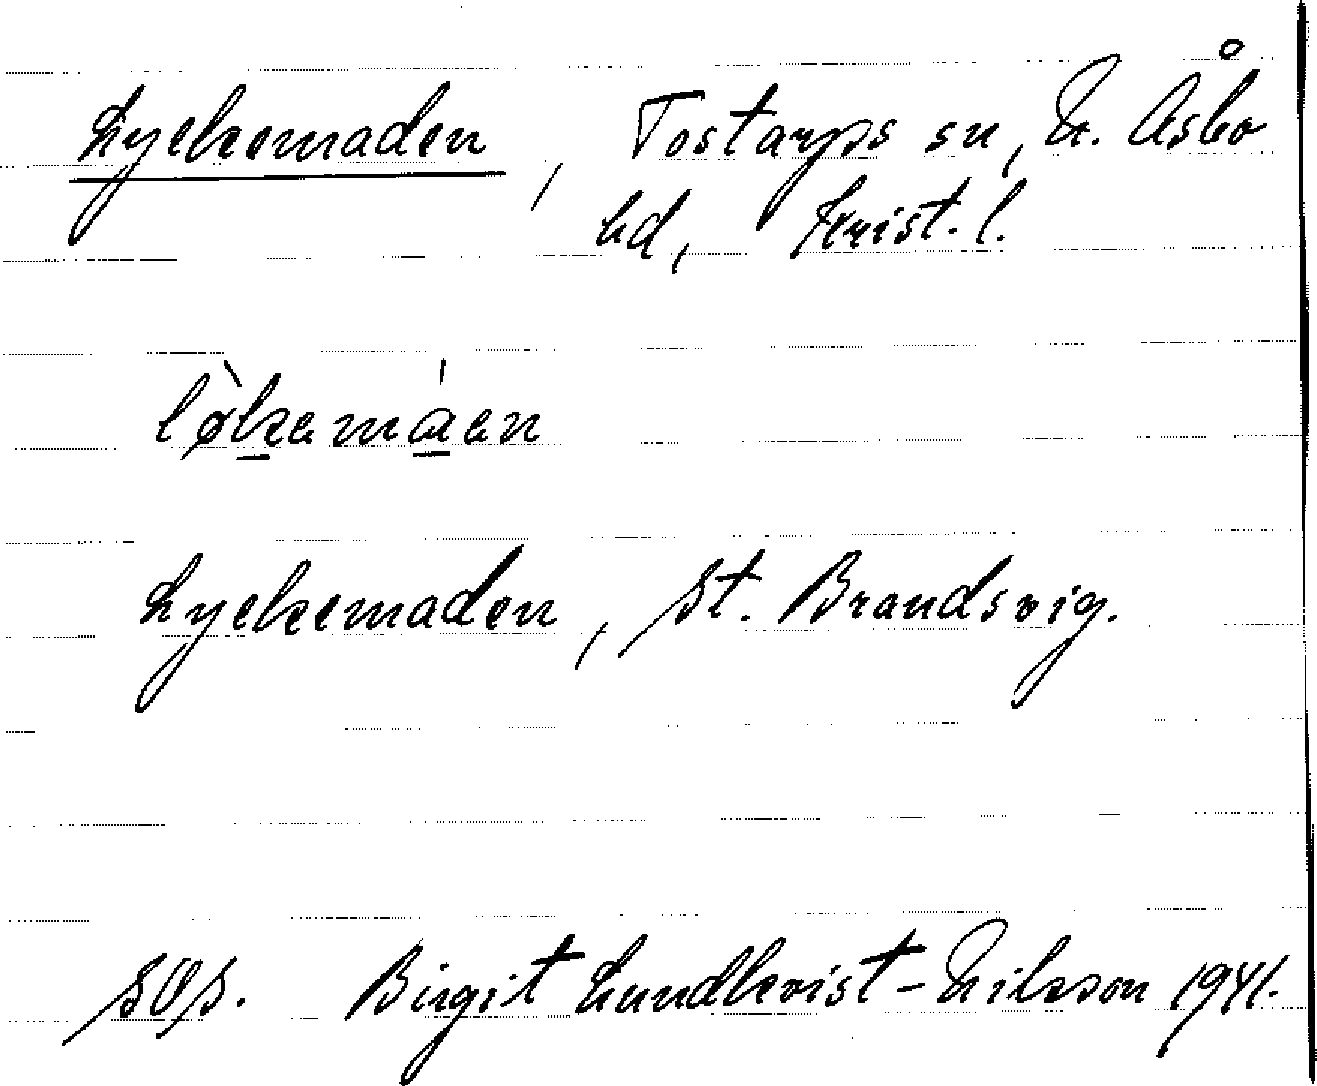 Lyckemaden, Tostarps sn, N. Åsbo
hd, Krist. l.
lø̀kemáen
Lyckemaden, St. Brandsvig.
SOS. Birgit Lundkvist-Nilsson 1941.